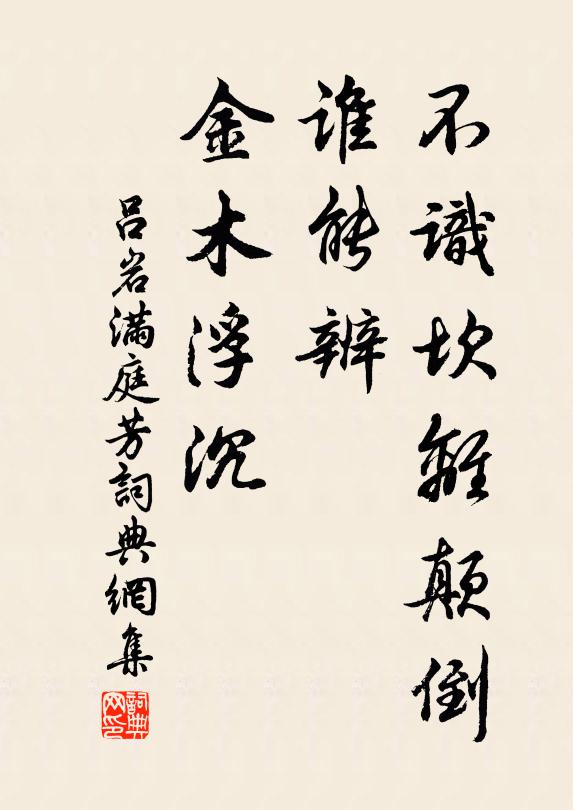 不識坎離顛倒
誰能辨
金木浮沉
呂岩滿庭芳詞典網集
詞典网印